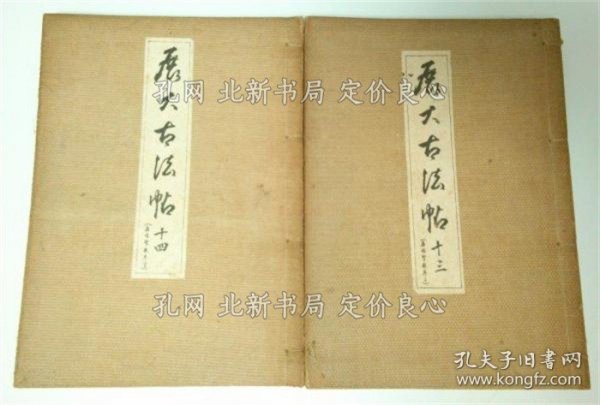 展大古法帖 十三
展大古法帖 十四
孔网 北新书局 定价良心
孔网 北新书局 定价良心
孔夫子旧书网
www.kongfz.com